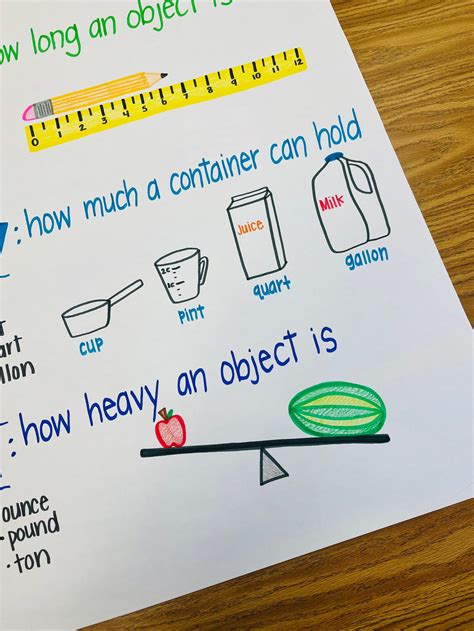 ow long an object is
0 1 2 3 4 5 6 7 8 9 10 11 12
: how much a container can hold
2C
1C
Juice
Milk
cup
pint
quart
gallon
art
llon
: how heavy an object is
ounce
• pound
• ton